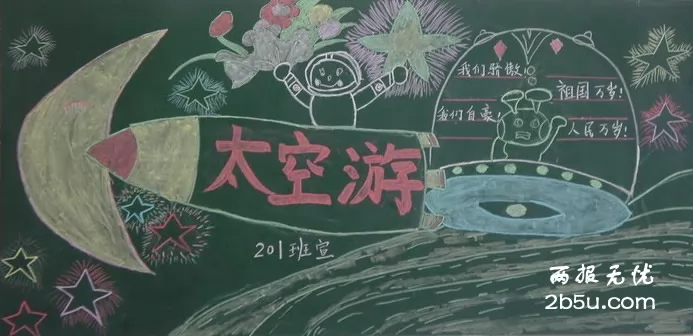 我们骄傲!
祖国万岁!
我们自豪!
人民万岁!
太空游
201班宣
两报无忧
2b5u.com